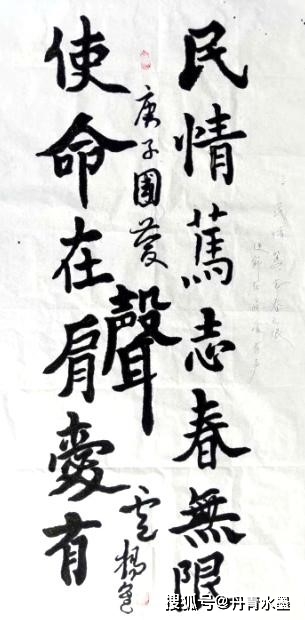 民情篤志春無限
使命在肩愛有
聲
庚子國慶
搜狐号@丹青水墨